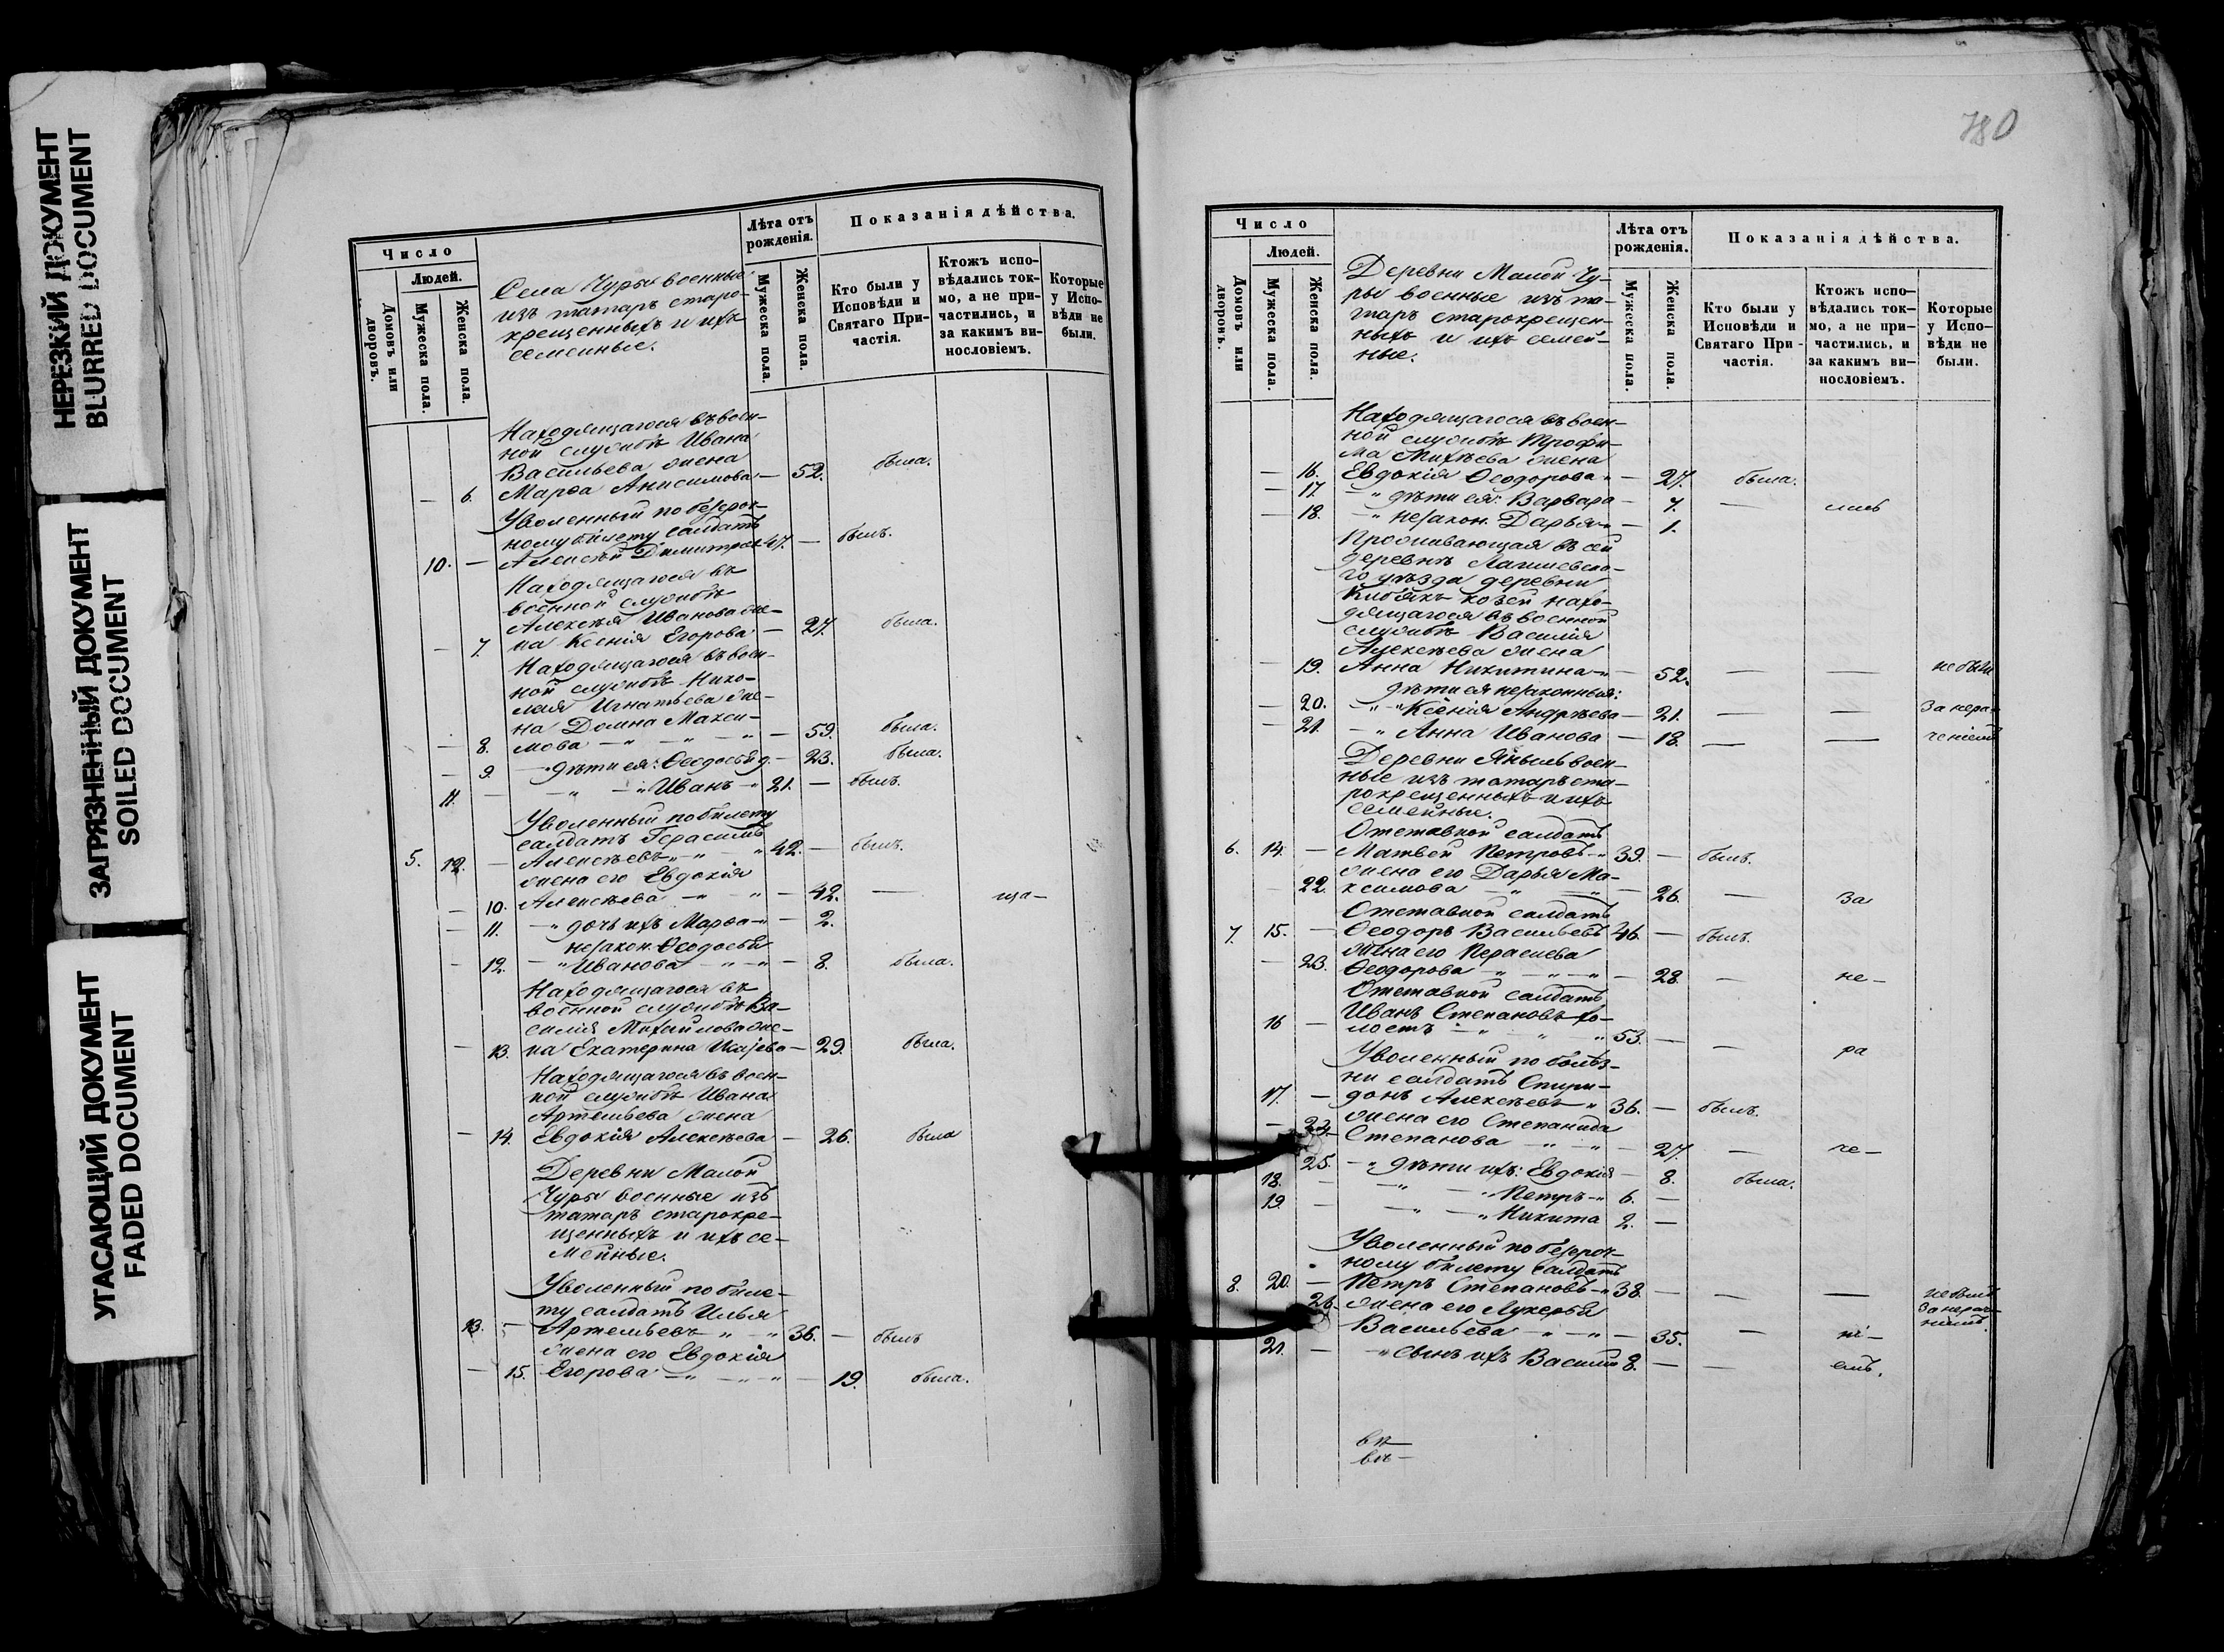 НЕРЕЗКИЙ ДОКУМЕНТ
BLURRED DOCUMENT
ЗАГРЯЗНЕННЫЙ ДОКУМЕНТ
SOILED DOCUMENT
УГАСАЮЩИЙ ДОКУМЕНТ
FADED DOCUMENT
Число
Людей.
Домовъ или дворовъ.
Мужеска пола.
Женска пола.
Села Чуры военные
изъ татаръ старо-
крещенныхъ и ихъ
семейные.
Лѣта отъ рожденія.
Мужеска пола.
Женска пола.
Показанія дѣйства.
Кто были у Исповѣди и Святаго Причастія.
Ктожъ исповѣдались токмо, а не причастились, и за какимъ винословіемъ.
Которые у Исповѣди не были.
Находящагося въ воен-
ной службѣ Ивана
Васильева жена
— 6. Марѳа Анисимова — 52. была.
Уволенный по безсроч-
ному билету салдатъ
10. — Алексѣй Димитріев 47. — былъ.
Находящагося въ
военной службѣ
Алексѣя Иванова же-
— 7. на Ксенія Егорова — 27. была.
Находящагося въ воен-
ной службѣ Нико-
лая Игнатьева же-
на Домна Макси-
— 8. мова — " — " — 59. была.
— 9. — " дѣти ея: Ѳеодосья — 23. была.
11. — — " — " Иванъ — " 21. — былъ.
Уволенный по билету
салдатъ Герасимъ
5. 12. — Алексѣевъ " — " 42. — былъ.
жена его Евдокія
— 10. Алексѣева — " — " — 42. — ща-
— 11. — " дочь ихъ Марѳа — " — 2.
незакон. Ѳеодосья
— 12. — " Иванова — " — " — 8. была.
Находящагося въ
военной службѣ Ва-
силія Михайлова же-
— 13. на Екатерина — 29. была.
Находящагося въ воен-
ной службѣ Ивана
Артемьева жена
— 14. Евдокія Алексѣева — 26. была
Деревни Малой
Чуры военные изъ
татаръ старокре-
щенныхъ и ихъ се-
мейные.
Уволенный по биле-
ту салдатъ Илья
13. — Артемьевъ " — " 36. — былъ
жена его Евдокія
— 15. Егорова — " — " — " — 19. была.
780
Число
Людей.
Домовъ или дворовъ.
Мужеска пола.
Женска пола.
Деревни Малой Чу-
ры военные изъ та-
таръ старокрещен-
ныхъ и ихъ семей-
ные.
Лѣта отъ рожденія.
Мужеска пола.
Женска пола.
Показанія дѣйства.
Кто были у Исповѣди и Святаго Причастія.
Ктожъ исповѣдались токмо, а не причастились, и за какимъ винословіемъ.
Которые у Исповѣди не были.
Находящагося въ воен-
ной службѣ Трофи-
ма Михѣева жена
— 16. Евдокія Ѳеодорова " — 27. была.
— 17. — " дѣти ея: Варвара — 7. —
— 18. — " незакон. Дарья — " — 1.
Проживающая въ сей
деревнѣ Лаишевска-
го уѣзда деревни
Кибякъ козей нахо-
дящагося въ военной
службѣ Василія
Алексѣева жена
— 19. Анна Никитина — " — 52. — — не были
дѣти ея незаконныя:
— 20. — " — " Ксенія Андрѣева — 21. — — за нера-
— 21. — " Анна Иванова — 18. — — ченіемъ
Деревни Яныль воен-
ные изъ татаръ ста-
рокрещенныхъ и ихъ
семейные.
Отставной салдатъ
6. 14. — Матвей Петровъ — " 39. — былъ.
жена его Дарья Ма-
— 22. ксимова — " — — 26. — за
Отставной салдатъ
7. 15. — Ѳеодоръ Васильевъ 46. — былъ.
жена его Параскева
— 23. Ѳеодорова — " — " — " — 28. — не-
Отставной салдатъ
Иванъ Степановъ хо-
16 — лостъ — " " " 53. — — ра
Уволенный по болѣз-
ни салдатъ Спири-
17. — донъ Алексѣевъ — " 36. — былъ.
жена его Степанида
— 24. Степанова — " — " — 27. — че-
25. — " дѣти ихъ: Евдокія — 8. была.
18. — — " — " Петръ — " 6. —
19. — — " — " Никита 2. —
Уволенный по безсроч-
ному билету салдатъ
8. 20. — Петръ Степановъ — " 38. — — — не былъ
26. жена его Лукерья за нераче-
Васильева — " — " — 35. — ні- ніемъ.
21. — — " сынъ ихъ Василій 8. — — емъ.